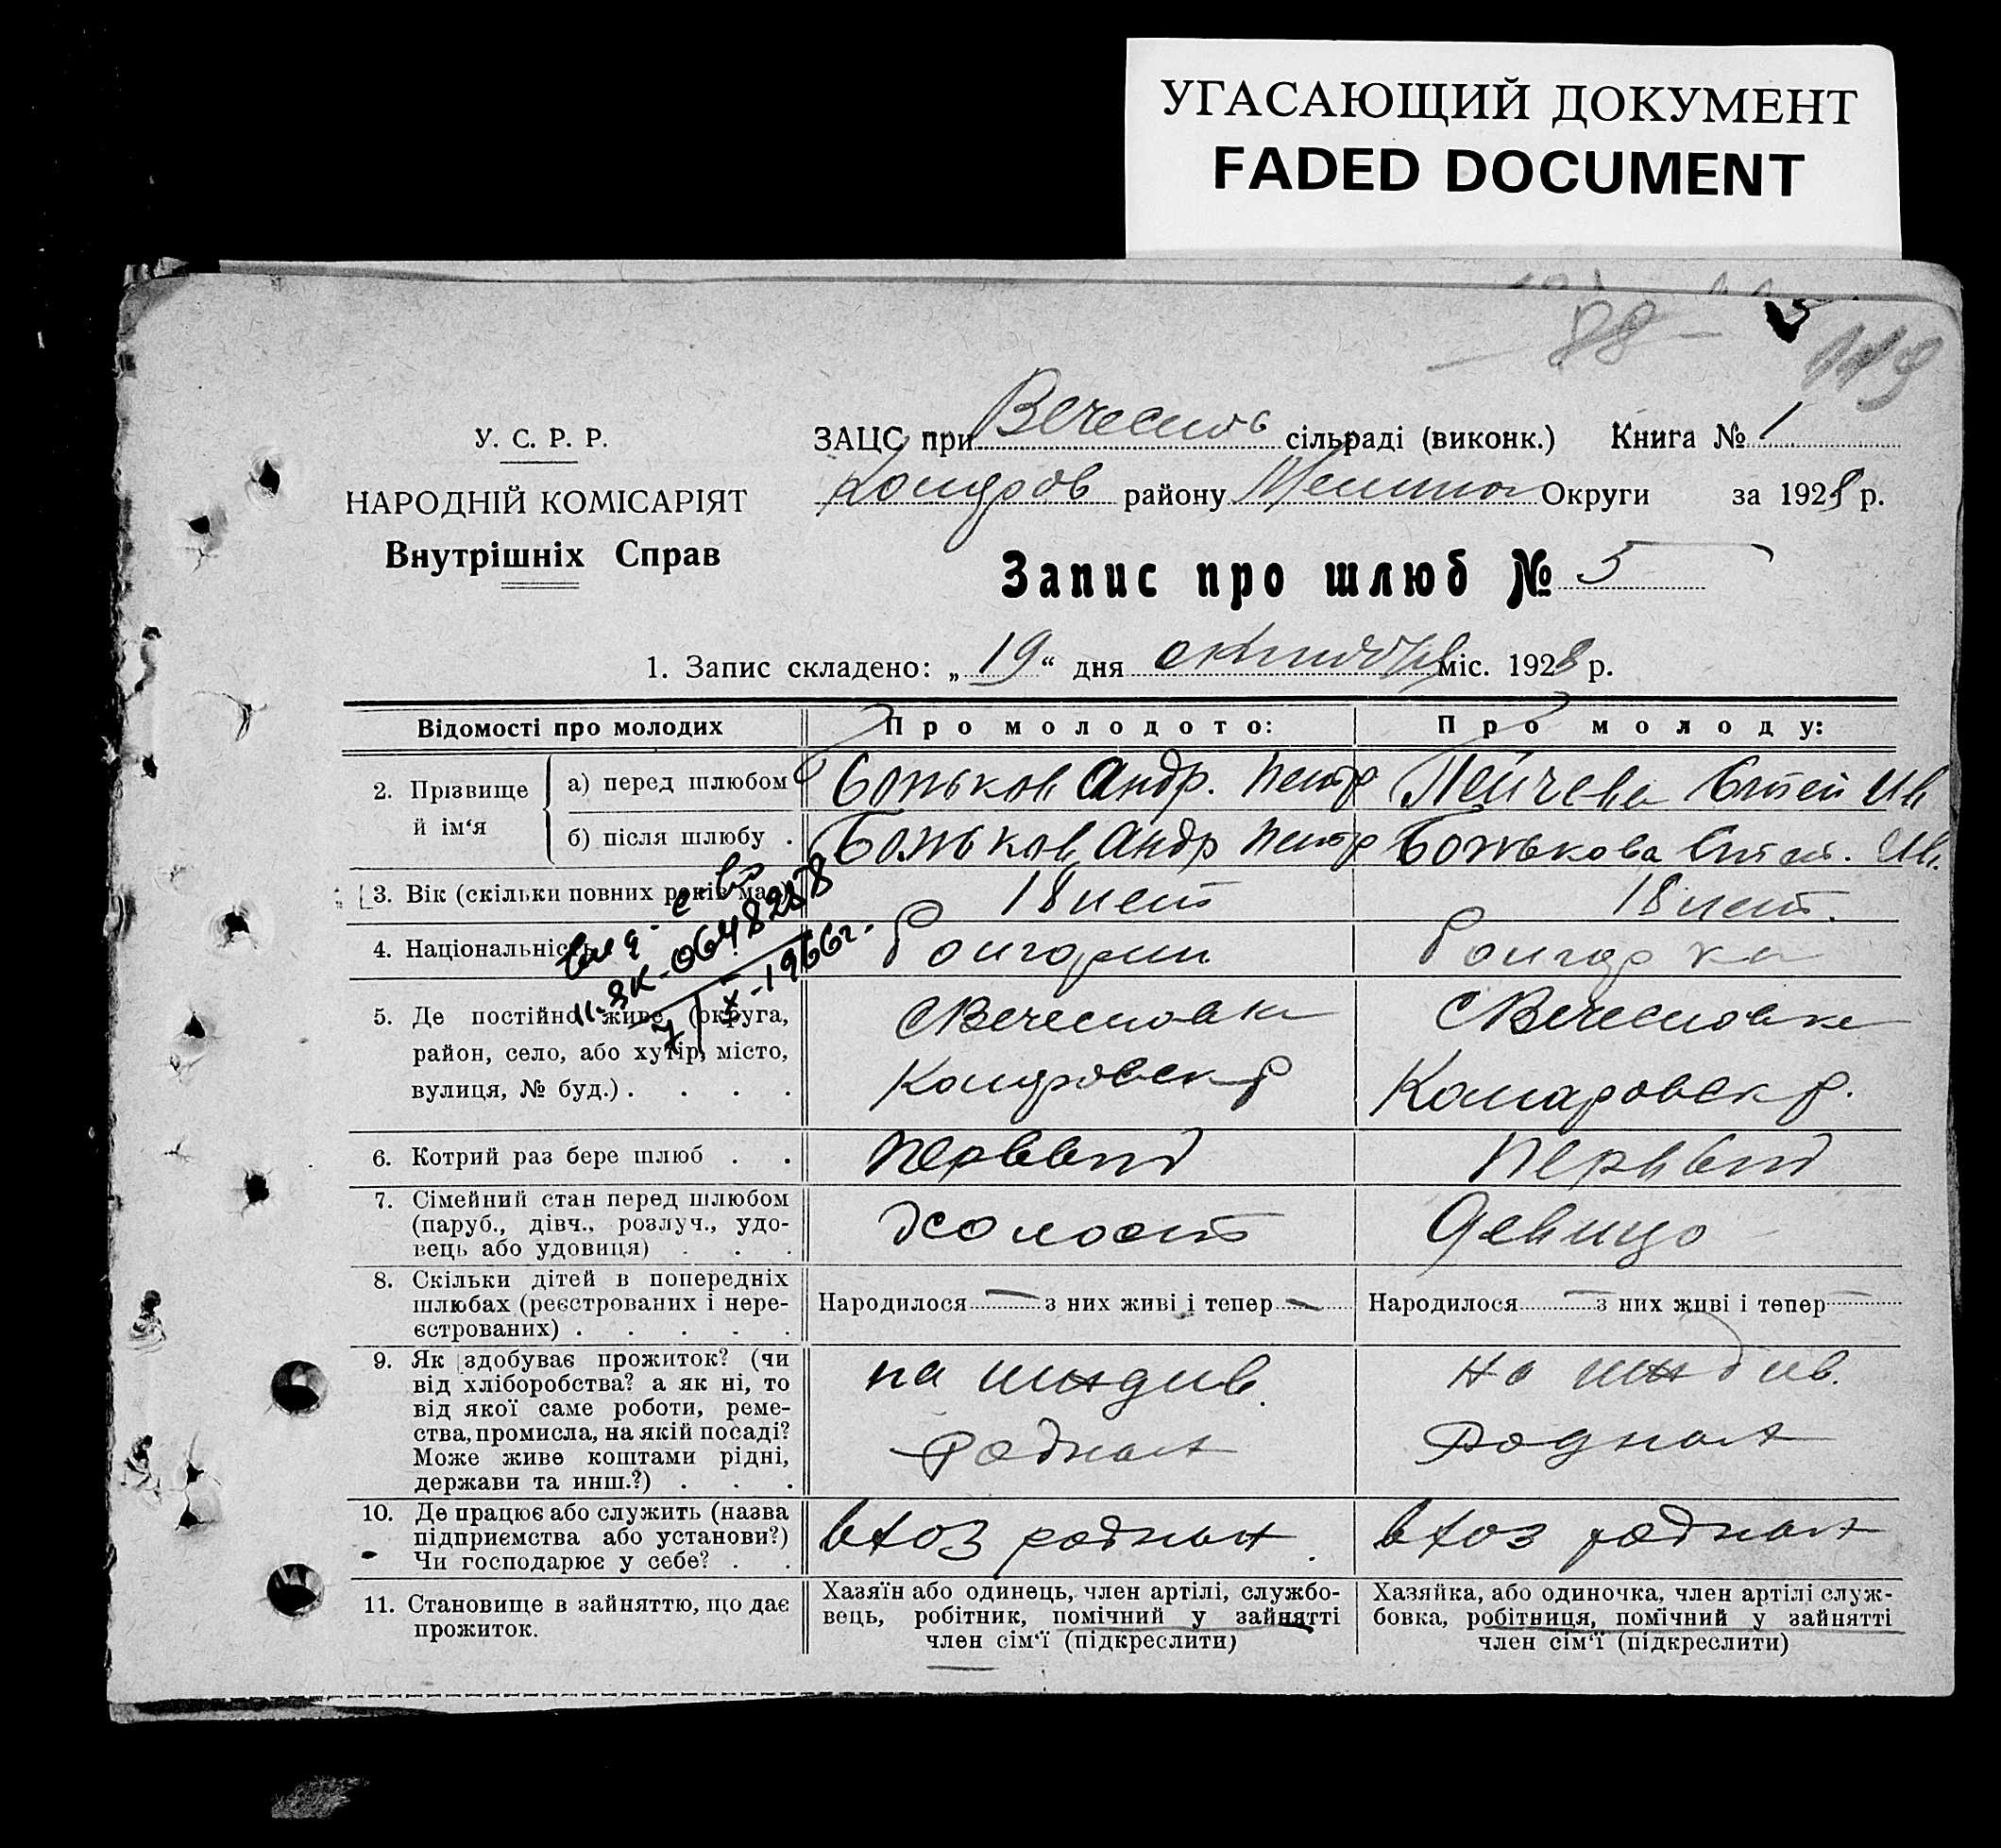 УГАСАЮЩИЙ ДОКУМЕНТ
FADED DOCUMENT
88
119
У. С. Р. Р.
НАРОДНІЙ КОМІСАРІЯТ
Внутрішніх Справ
ЗАЦС при сільраді (виконк.) Книга № 1
району Округи за 1928 р.
Запис про шлюб № 5
1. Запис складено: „19“ дня октября міс. 1928 р.
Відомості про молодих
Про молодого:
Про молоду:
2. Прізвище й ім‘я
а) перед шлюбом
Боньков Андр. Петр
Пейчева Ив
б) після шлюбу .
Боньков Андр Петр
Бонькова Ив.
3. Вік (скільки повних років має)
18 лет
18 лет.
4. Національність
Болгарин
Болгарка
выд. с-во
ЯК-0648258
7/X-1966г.
5. Де постійно живе (округа,
район, село, або хутір, місто,
вулиця, № буд.) . . . .
Комаровск р.
6. Котрий раз бере шлюб . .
первый
первый
7. Сімейний стан перед шлюбом
(паруб., дівч., розлуч., удо-
вець або удовиця) . . .
холост
девица
8. Скільки дітей в попередніх
шлюбах (реєстрованих і нере-
єстрованих) . . . . .
Народилося — з них живі і тепер —
Народилося — з них живі і тепер —
9. Як здобуває прожиток? (чи
від хліборобства? а як ні, то
від якої саме роботи, реме-
ства, промисла, на якій посаді?
Може живе коштами рідні,
держави та инш.?) . . .
на иждив.
родных
на иждив.
родных
10. Де працює або служить (назва
підприємства або установи?)
Чи господарює у себе? . .
в хоз родных.
в хоз родных
11. Становище в зайняттю, що дає
прожиток.
Хазяїн або одинець, член артілі, службо-
вець, робітник, помічний у зайнятті
член сім‘ї (підкреслити)
Хазяйка, або одиночка, член артілі служ-
бовка, робітниця, помічний у зайнятті
член сім‘ї (підкреслити)